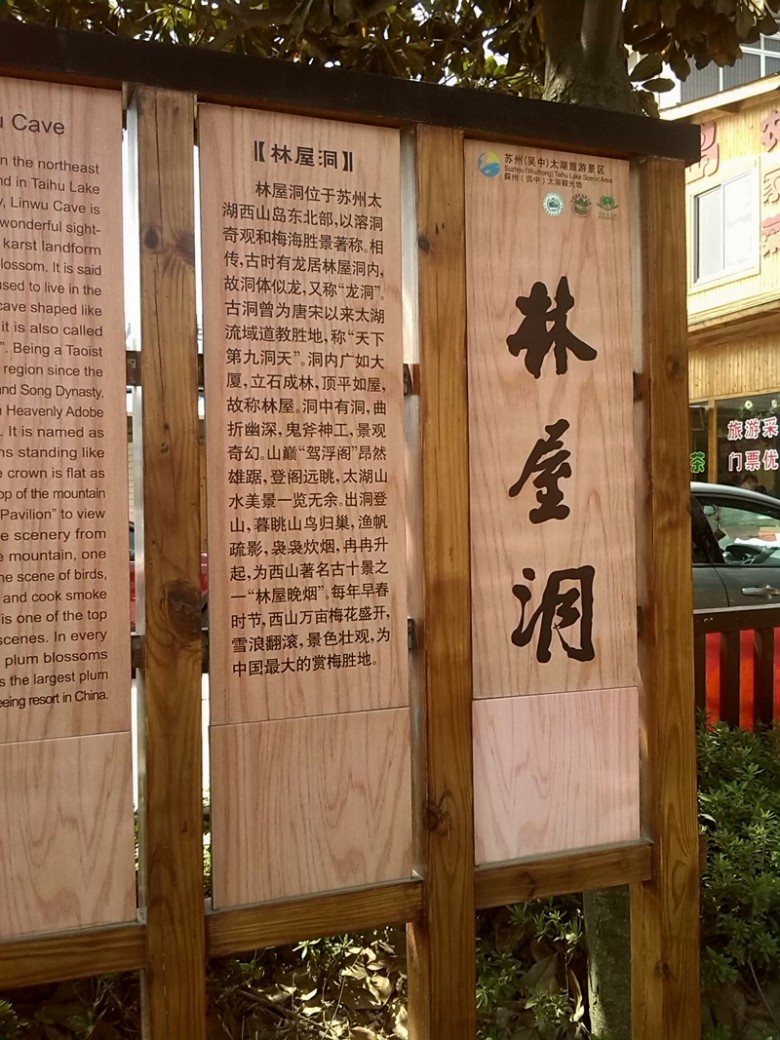 u Cave
n the northeast
nd in Taihu Lake
y, Linwu Cave is
wonderful sight-
karst landform
lossom. It is said
used to live in the
cave shaped like
it is also called
". Being a Taoist
region since the
and Song Dynasty,
Heavenly Adobe
. It is named as
ns standing like
e crown is flat as
op of the mountain
Pavilion" to view
e scenery from
e mountain, one
he scene of birds,
and cook smoke
is one of the top
scenes. In every
plum blossoms
s the largest plum
eeing resort in China.
【林屋洞】
林屋洞位于苏州太
湖西山岛东北部,以溶洞
奇观和梅海胜景著称。相
传,古时有龙居林屋洞内,
故洞体似龙,又称“龙洞”。
古洞曾为唐宋以来太湖
流域道教胜地,称“天下
第九洞天”。洞内广如大
厦,立石成林,顶平如屋,
故称林屋。洞中有洞,曲
折幽深,鬼斧神工,景观
奇幻。山巅“驾浮阁”昂然
雄踞,登阁远眺,太湖山
水美景一览无余。出洞登
山,暮眺山鸟归巢,渔帆
疏影,袅袅炊烟,冉冉升
起,为西山著名古十景之
一“林屋晚烟”。每年早春
时节,西山万亩梅花盛开,
雪浪翻滚,景色壮观,为
中国最大的赏梅胜地。
苏州(吴中)太湖旅游景区
Suzhou (Wuzhong) Taihu Lake Scenic Area
林
屋
洞
旅游采
茶
门票优